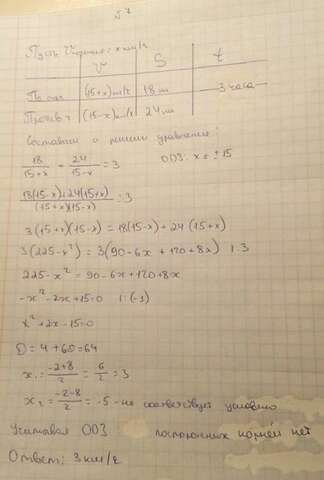 №7
Пусть Vтечения: x км/ч
V S t
По теч (15+x)км/ч 18 км 3 часа
Против т (15-x)км/ч 24 км
Составим и решим уравнение:
18/(15+x) + 24/(15-x) = 3 ОДЗ: x ≠ ±15
(18(15-x)+24(15+x))/((15+x)(15-x)) = 3
3(15+x)(15-x) = 18(15-x) + 24(15+x)
3(225-x²) = 3(90-6x+120+8x) |:3
225-x² = 90-6x+120+8x
-x²-2x+15=0 |:(-1)
x²+2x-15=0
D=4+60=64
x₁ = (-2+8)/2 = 6/2 = 3
x₂ = (-2-8)/2 = -5 - не соответствует условию
Учитывая ОДЗ посторонних корней нет
Ответ: 3 км/ч